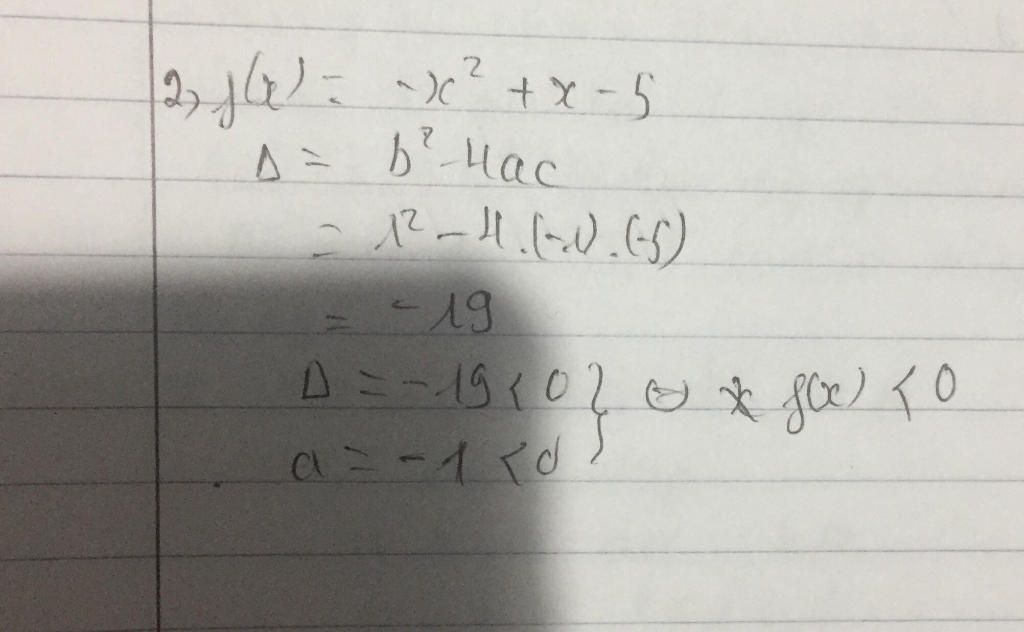 2, f(x) = -x² + x - 5
Δ = b² - 4ac
= 1² - 4.(-1).(-5)
= -19
Δ = -19 < 0 } ⇔ f(x) < 0
a = -1 < 0